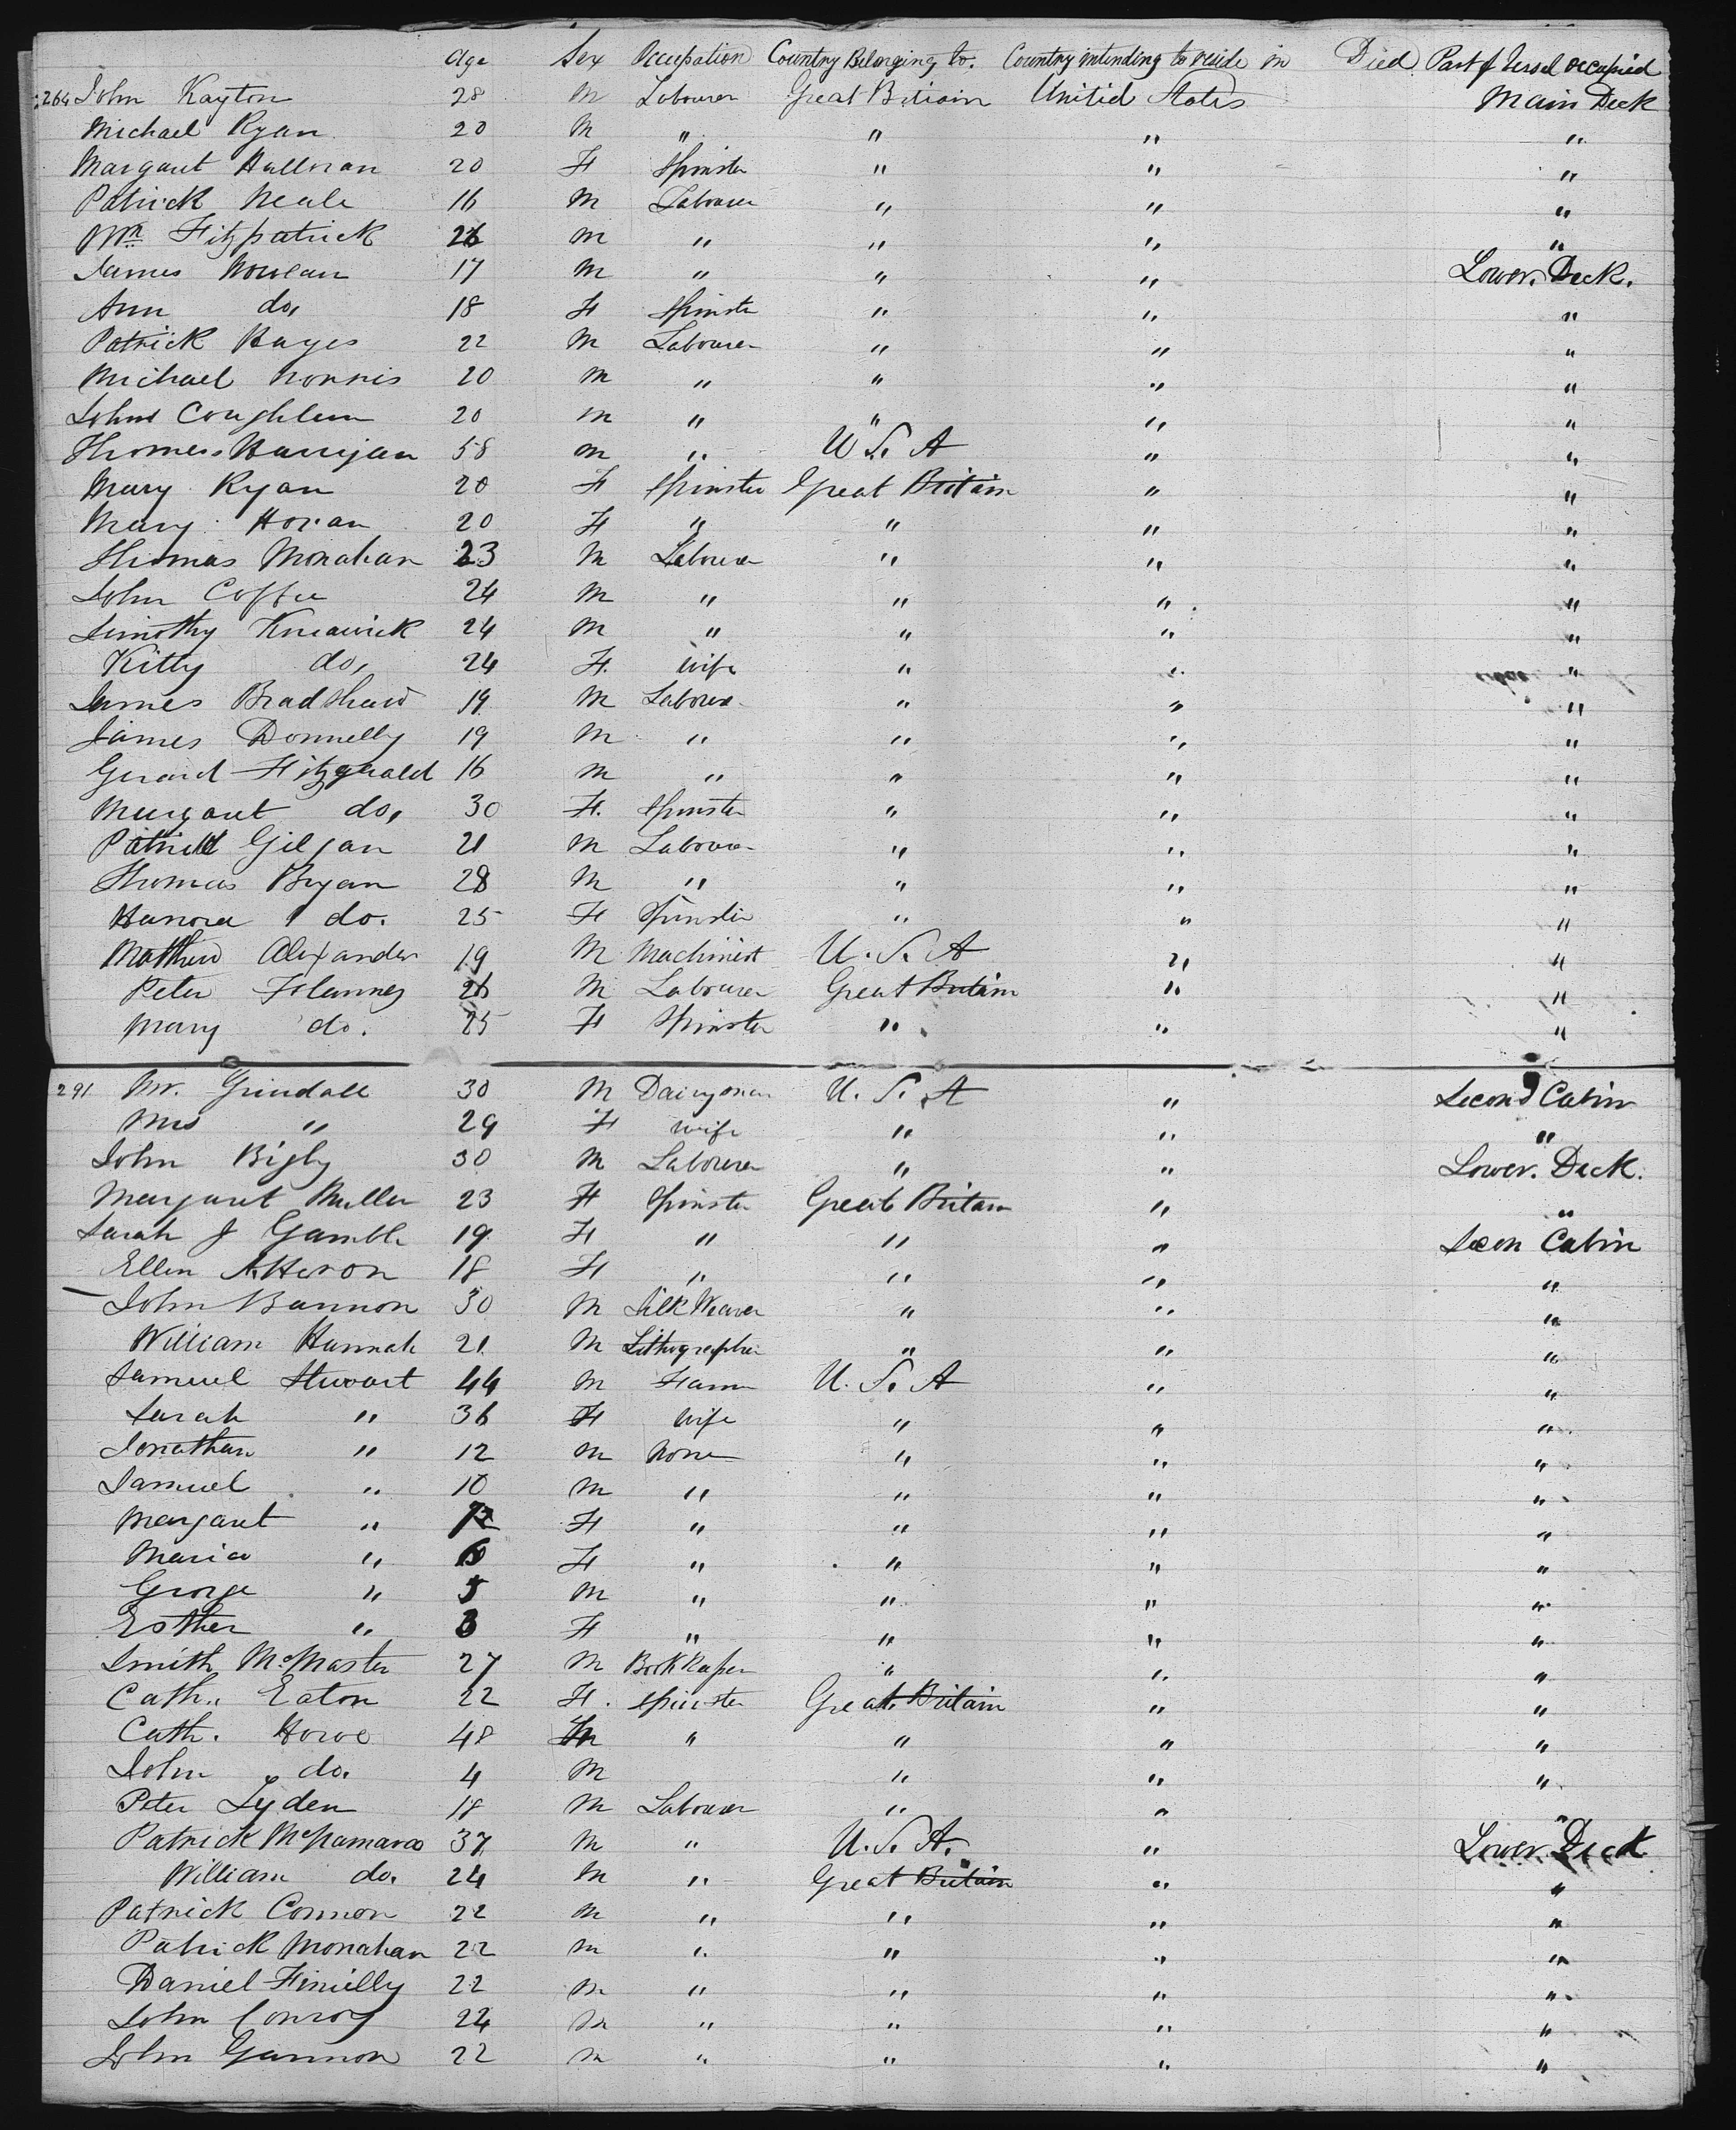 Age Sex Occupation Country Belonging to. Country intending to reside in Died Part of Vessel occupied
264 John Kayton 28 M Labourer Great Britain United States Main Deck
Michael Ryan 20 M " " " "
Margaret Halloran 20 F Spinster " " "
Patrick Neale 16 M Labourer " " "
Wm Fitzpatrick 26 M " " " "
James Nowlan 17 M " " " Lower. Deck.
Ann do, 18 F Spinster " " "
Patrick Hayes 22 M Labourer " " "
Michael Norris 20 M " " " "
John Coughlan 20 M " " " "
Thomas Harrigan 58 M " U. S. A " "
Mary Ryan 20 F Spinster Great Britain " "
Mary Horan 20 F " " " "
Thomas Monahan 23 M Labourer " " "
John Coffee 24 M " " " "
Timothy 24 M " " " "
Kitty do, 24 F. Wife " " "
James Bradshaw 19 M Labourer " " "
James Donnelly 19 M " " " "
Gerard Fitzgerald 16 M " " " "
Margaret do, 30 F. Spinster " " "
Patrick Gilgan 21 M Labourer " " "
Thomas Bryan 28 M " " " "
Hanora do. 25 F Spinster " " "
Matthew Alexander 19 M Machinist U. S. A " "
Peter Flannery 26 M Labourer Great Britain " "
Mary do. 25 F Spinster " " "
291 Mr. Grindall 30 M Dairyman U. S. A " Second Cabin
Mrs " 29 F Wife " " "
John Bigby 30 M Labourer " " Lower. Deck.
Margaret Muller 23 F Spinster Great Britain " "
Sarah J Gamble 19 F " " " Secon Cabin
Ellen 18 F " " " "
John Bannon 30 M Silk Weaver " " "
William Hannah 21 M Lithographer " " "
Samuel Stewart 44 M Farmer U. S. A " "
Sarah " 36 F Wife " " "
Jonathan " 12 M None " " "
Samuel " 10 M " " " "
Margaret " F " " " "
Maria " F " " " "
George " 5 M " " " "
Esther " 3 F " " " "
Smith McMaster 27 M Book Keeper " " "
Cath. Eaton 22 F. Spinster Great Britain " "
Cath. Howe 48 " " " "
John do. 4 M " " "
Peter Lyden 18 M Labourer " " "
Patrick McNamara 37 M " U. S. A. " Lower. Deck
William do. 24 M " Great Britain " "
Patrick Connon 22 M " " " "
Patrick Monahan 22 M " " " "
Daniel Finielly 22 M " " " "
John Conroy 22 M " " " "
John Gannon 22 M " " " "